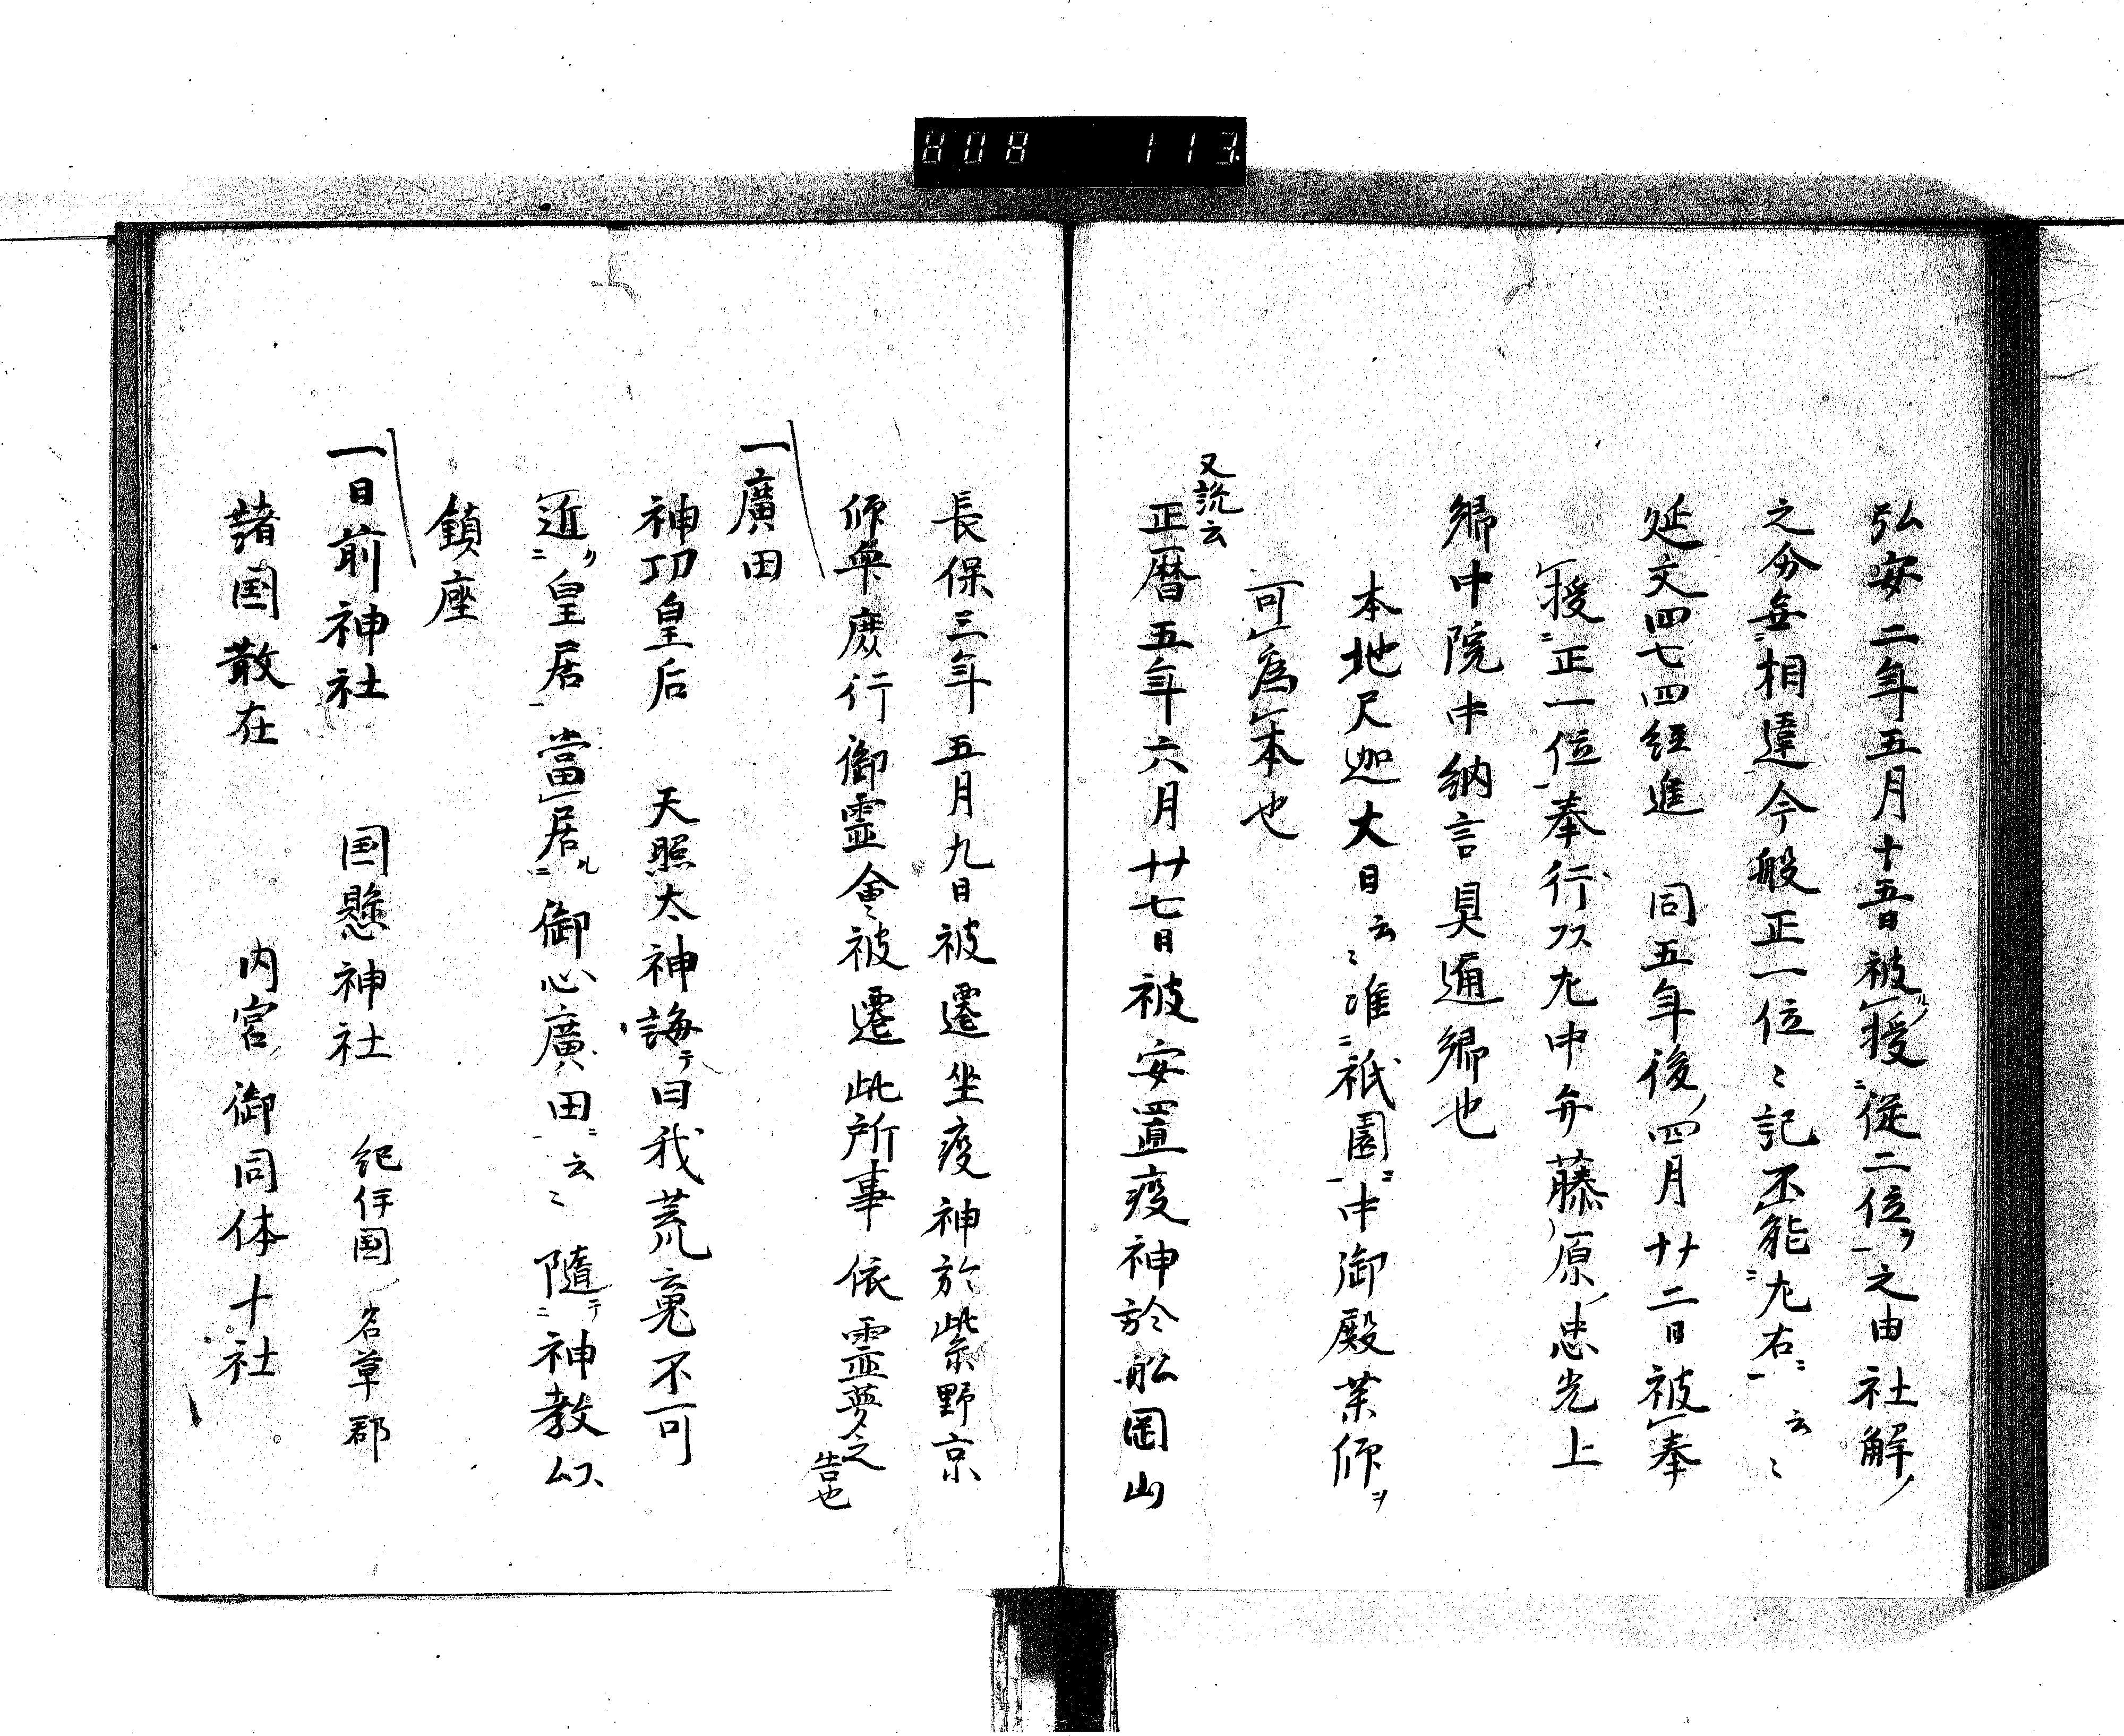 808 113
弘安二年五月十五日被授従二位ヲ之由社解
之分無相違今般正一位〻記不能左右云〻
延文四七四経進 同五年後四月廿二日被奉
授正一位奉行左中弁藤原忠光上
卿中院中納言具通卿也
本地尺迦大日云〻准祇園中御殿薬師ヲ
可為本也
又説云
正暦五年六月廿七日被安置疫神於舩岡山
長保三年五月九日被遷坐疫神於紫野京
師輿庶行御霊会被遷此所事依霊夢之
告也
一廣田
神功皇后 天照太神誨テ曰我荒魂不可
近皇居當居ル御心廣田云〻随テ神教以
鎮座
一日前神社 国懸神社 紀伊国 名草郡
諸国散在 内宮御同体十社